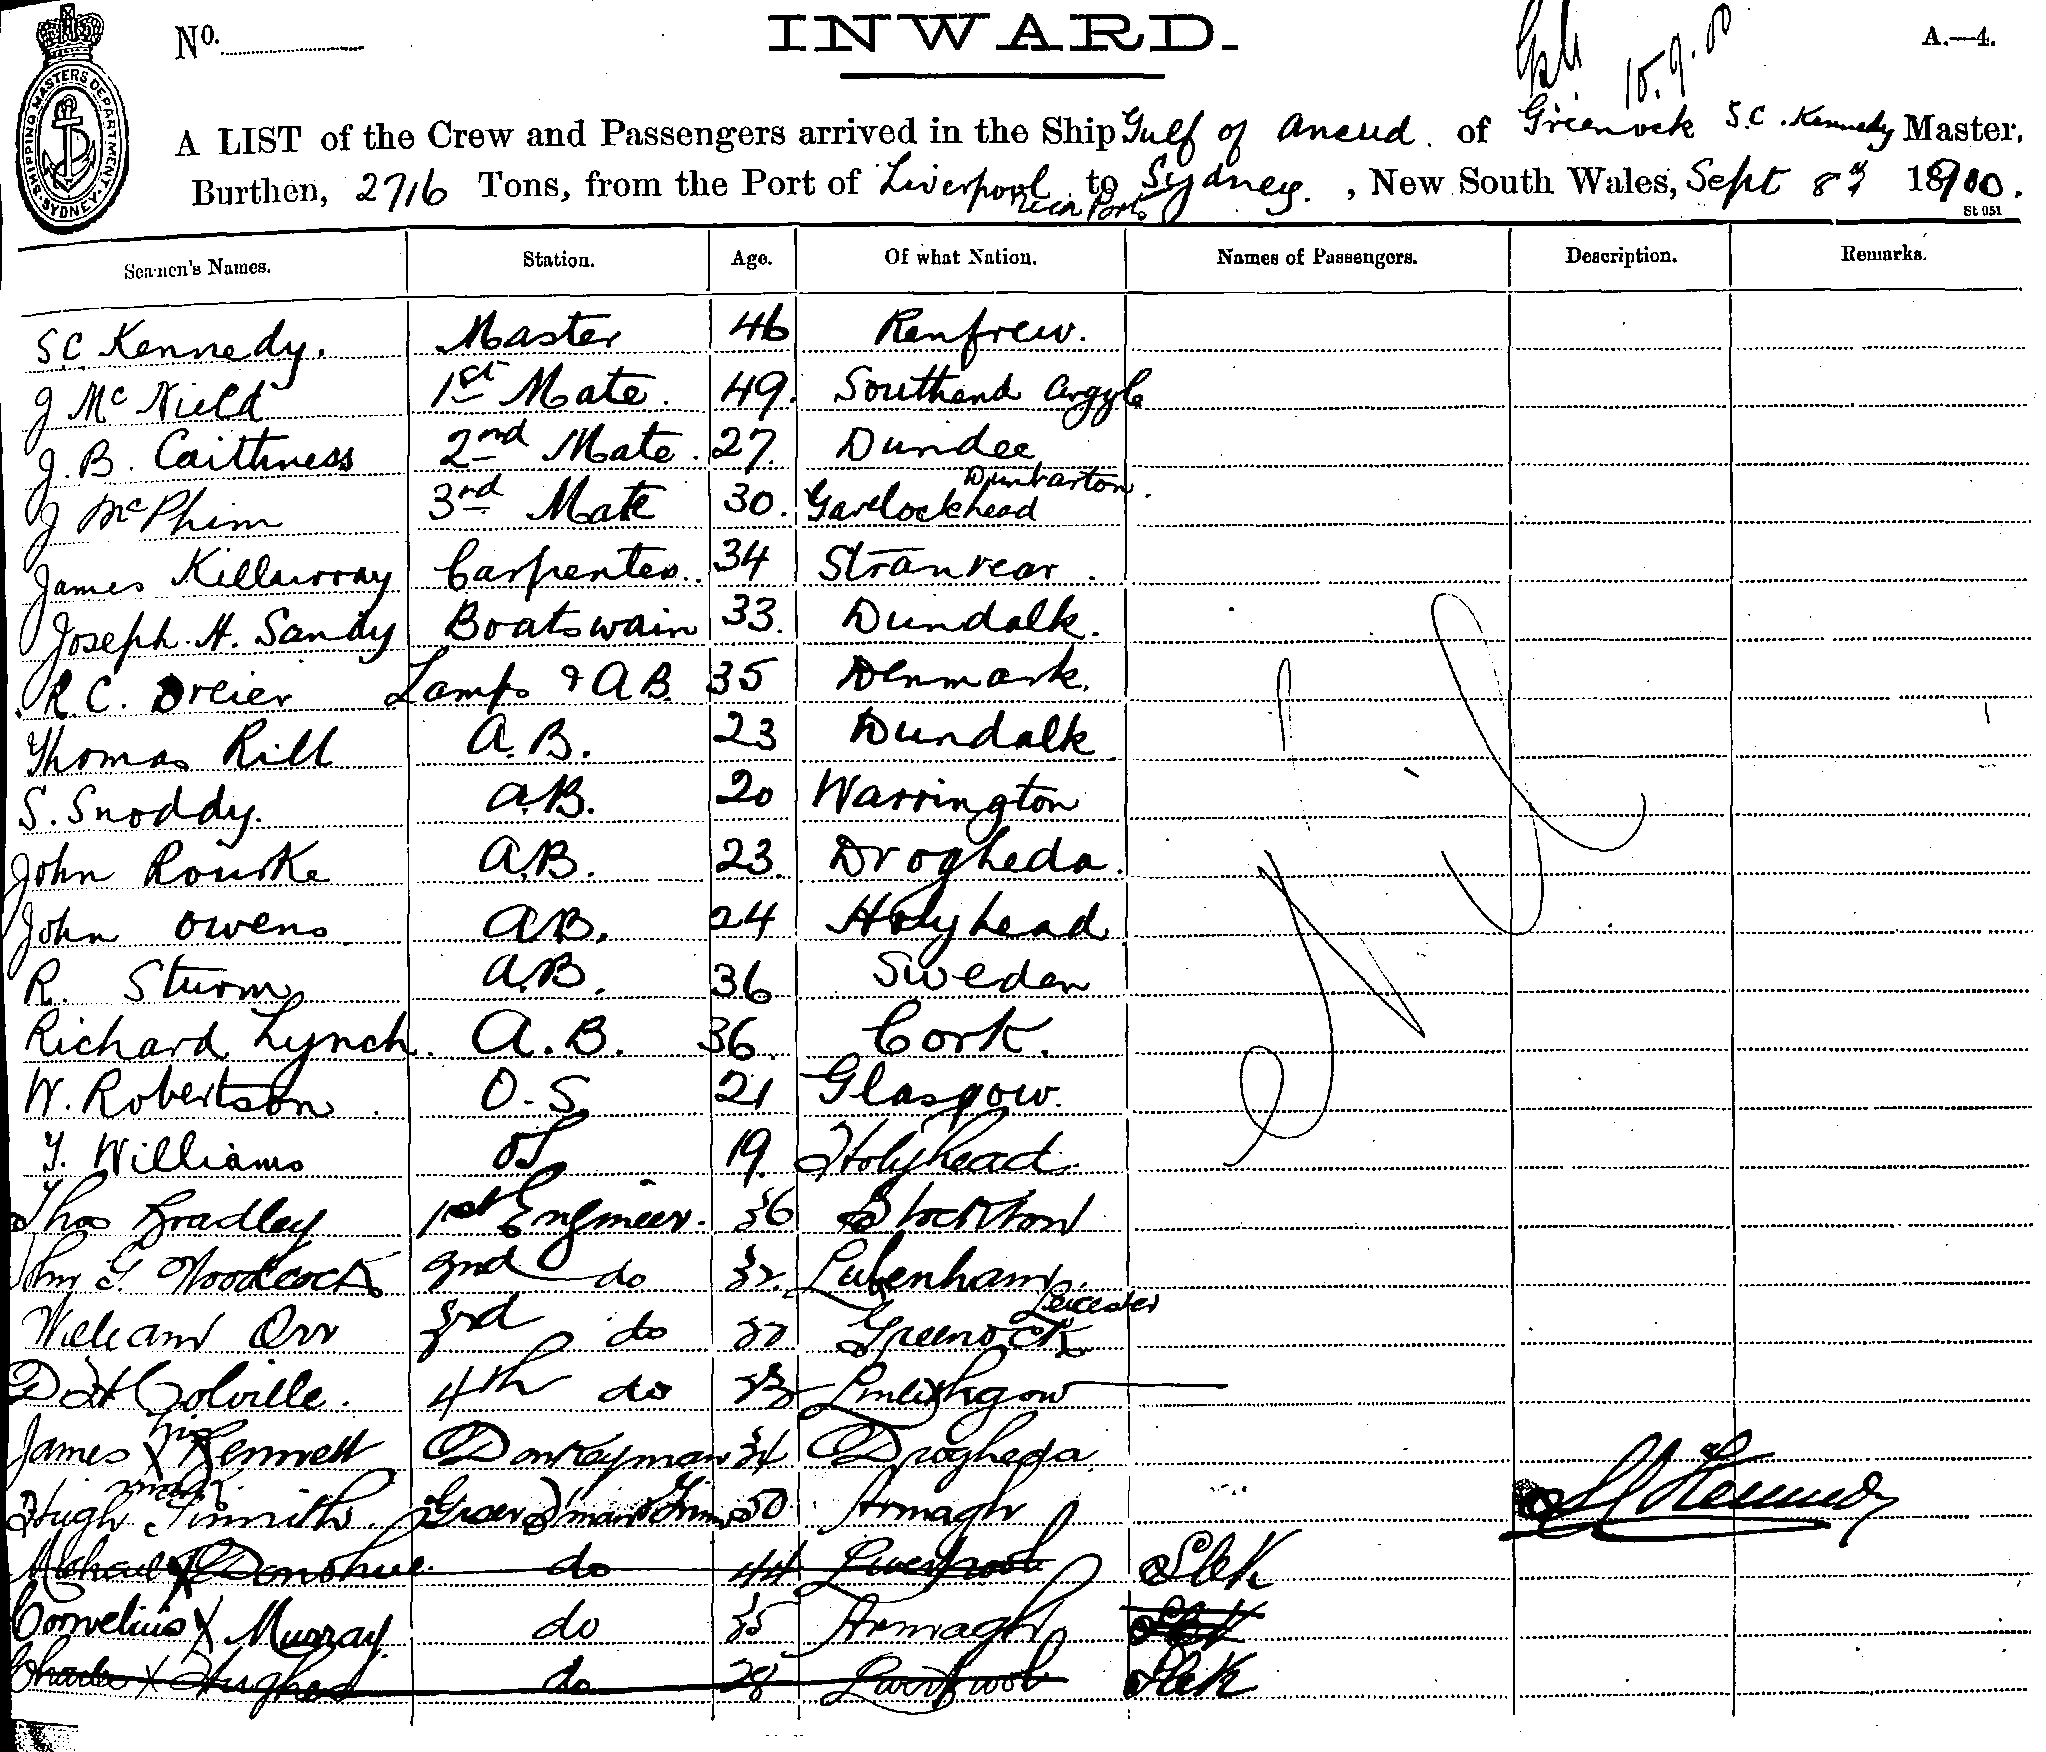 No.
INWARD.
15.9.00
A.—4.
SHIPPING MASTERS DEPARTMENT. SYDNEY.
A LIST of the Crew and Passengers arrived in the Ship Gulf of Ancud. of Greenock S.C. Kennedy Master,
Burthen, 2716 Tons, from the Port of Liverpool via Ports to Sydney. , New South Wales, Sept 8th 1900.
St 051
Seamen's Names. Station. Age. Of what Nation. Names of Passengers. Description. Remarks.
S.C. Kennedy. Master 46 Renfrew.
J McNield 1st Mate. 49. Southend Argyle
J. B. Caithness 2nd Mate. 27. Dundee
J McPhim 3rd Mate 30. Garelockhead Dumbarton.
James Killwrray Carpenter. 34 Stranrear.
Joseph. H. Sandy Boatswain 33. Dundalk.
R. C. Dreier Lamps & A B. 35 Denmark.
Thomas Rill A. B. 23 Dundalk
S. Snoddy. A.B. 20 Warrington
John Rourke A.B. 23. Drogheda.
John Owens A.B. 24 Holyhead
R. Sturm A.B. 36 Sweden
Richard Lynch. A. B. 36. Cork.
W. Robertson O.S 21 Glasgow.
T. Williams OS 19. Holyhead.
Thos Bradley 1st Engineer. 36 Stockton
Jhn G Woodcock 2nd do 32. Lubenham Leicester
William Orr 3rd do Greenock
D H Colville. 4th do 23 Linlithgow
James X Kennett his Donkeyman 34 Drogheda.
Hugh Tinnith mark. Greaser 50 Armagh
Michael X O'Donohue. do 44 Liverpool S & K
Cornelius X Murray. do 35 Armagh
Charles X Hughes do 28 Liverpool
S C Kennedy